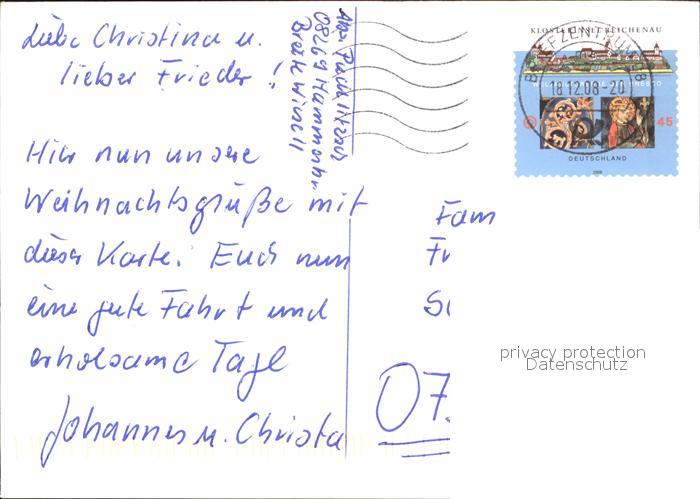 Liebe Christina u.
lieber Frieder!
Hier nun unsere
Weihnachtsgrüße mit
dieser Karte. Euch nun
eine gute Fahrt und
erholsame Tage
Johannes u. Christa
Abs.
08269 Hammerbr.
KLOSTERINSEL REICHENAU
BRIEFZENTRUM 08
18.12.08-20
45
DEUTSCHLAND
2008
Fam
Fr
07
privacy protection
Datenschutz